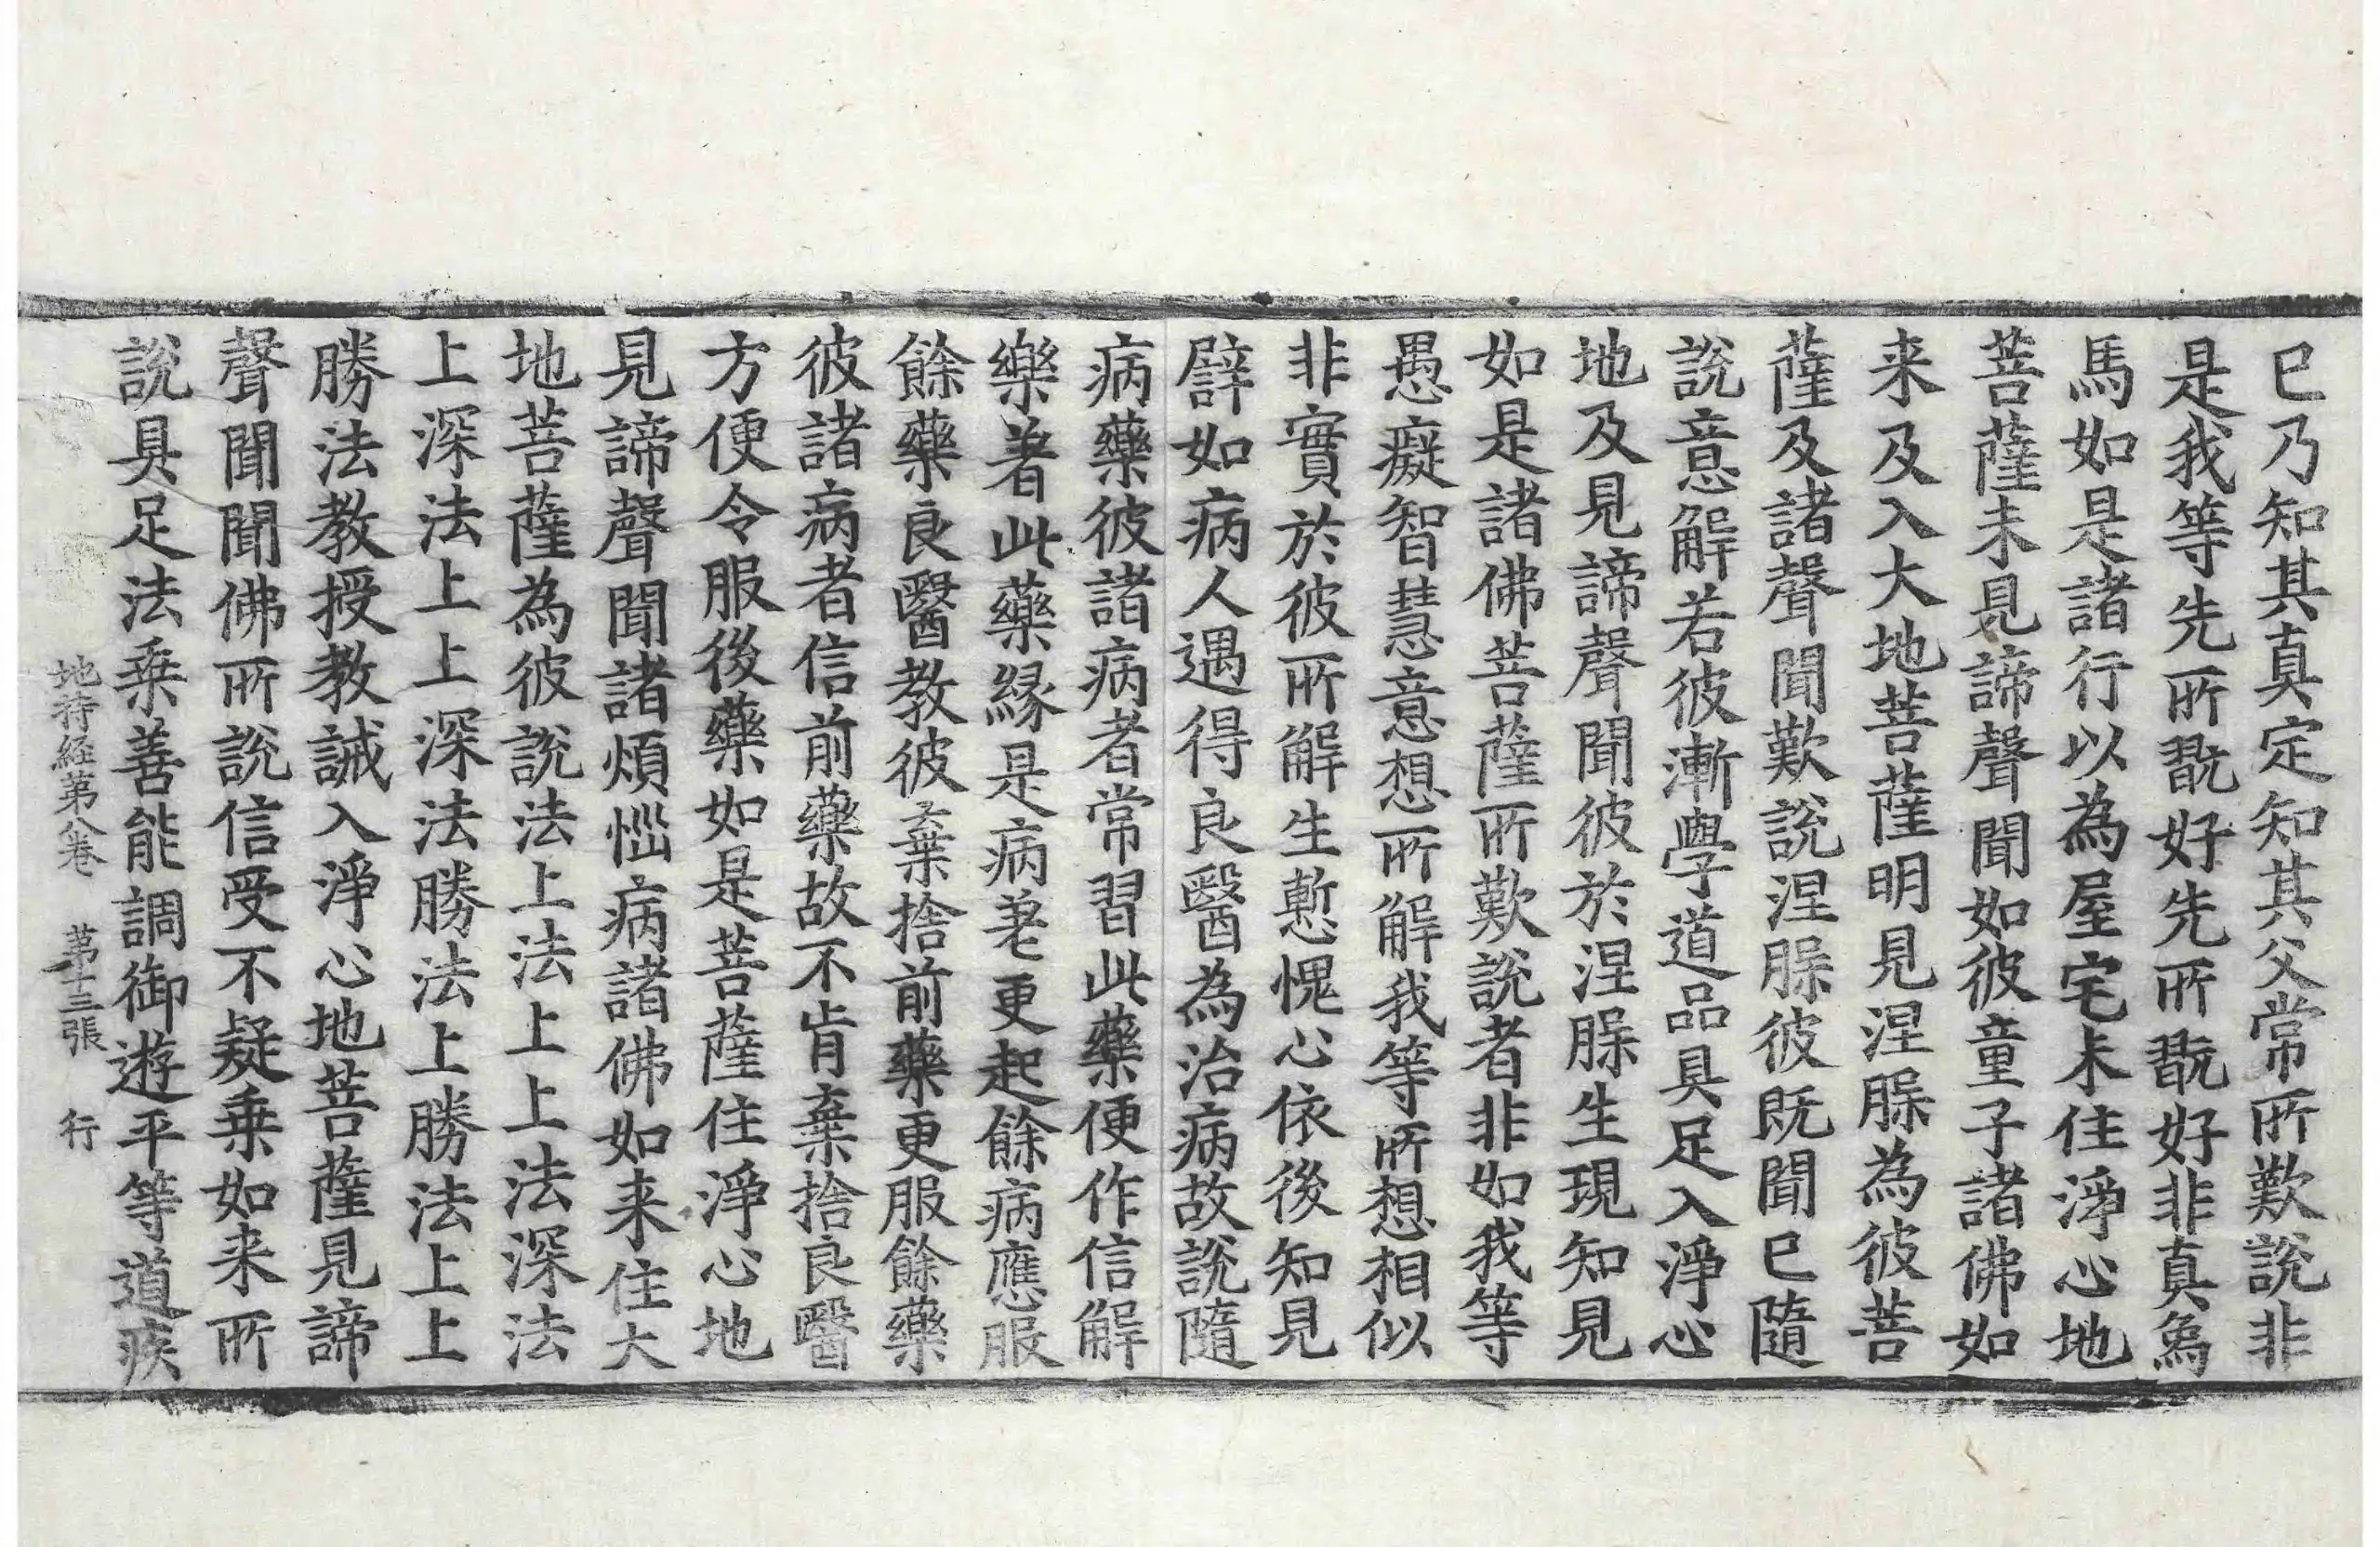 已乃知其真定知其父常所歎說非
是我等先所翫好先所翫好非真為
馬如是諸行以為屋宅未住淨心地
菩薩未見諦聲聞如彼童子諸佛如
来及入大地菩薩明見涅槃為彼菩
薩及諸聲聞歎說涅槃彼既聞已隨
說意解若彼漸學道品具足入淨心
地及見諦聲聞彼於涅槃生現知見
如是諸佛菩薩所歎說者非如我等
愚癡智慧意想所解我等所想相似
非實於彼所解生慙愧心依後知見
譬如病人遇得良醫為治病故說隨
病藥彼諸病者常習此藥便作信解
樂著此藥緣是病差更起餘病應服
餘藥良醫教彼棄捨前藥更服餘藥
彼諸病者信前藥故不肯棄捨良醫
方便令服後藥如是菩薩住淨心地
見諦聲聞諸煩惱病諸佛如来住大
地菩薩為彼說法上法上上法深法
上深法上上深法勝法上勝法上上
勝法教授教誡入淨心地菩薩見諦
聲聞聞佛所說信受不疑乗如来所
說具足法乗善能調御遊平等道疾
地持経第八卷　第十三張　行